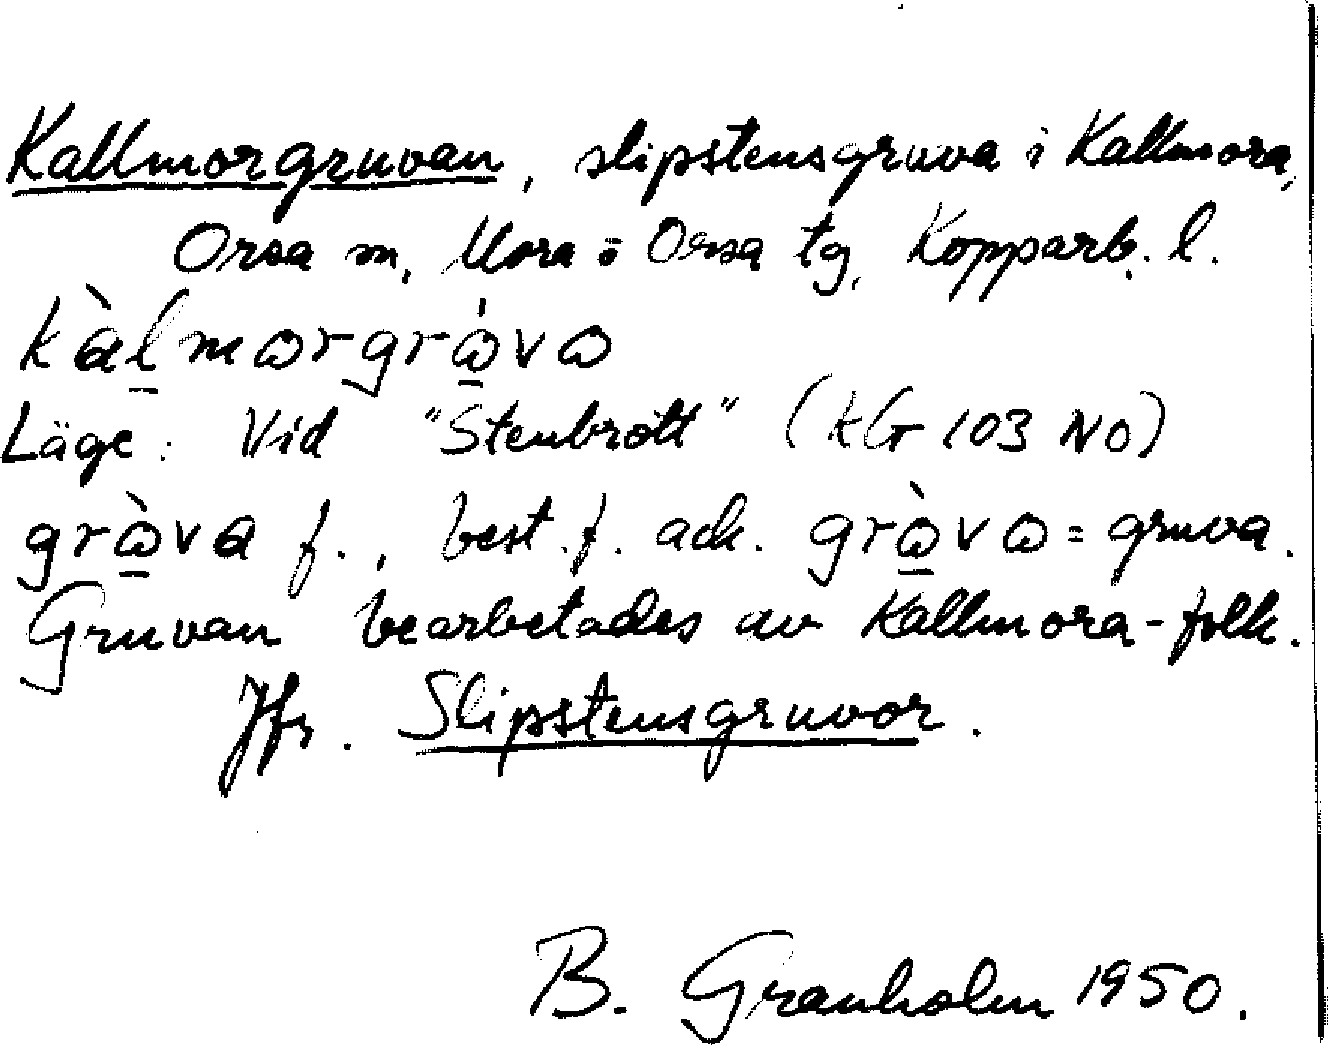 Kallmorgruvan, slipstensgruva i Kallmora,
Orsa sn, Mora o Orsa tg, Kopparb. l.
kàl̠mωrgrώ̠vω
Läge: Vid "Stenbrott" (KG 103 NO)
grὼ̠va f., best. f. ack. grὼ̠vω = gruva.
Gruvan bearbetades av Kallmora-folk.
Jfr. Slipstensgruvor.
B. Granholm 1950.